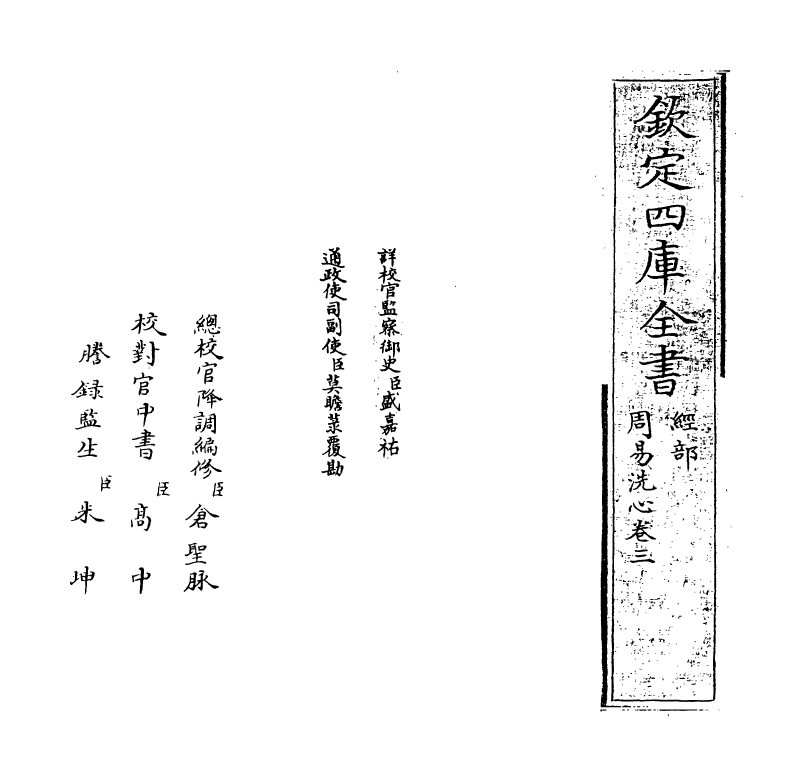 欽定四庫全書
經部
周易洗心卷三
詳校官監察御史臣盛嘉祐
通政使司副使臣莫瞻菉覆勘
總校官降調編修臣倉聖脉
校對官中書臣高中
謄録監生臣朱坤